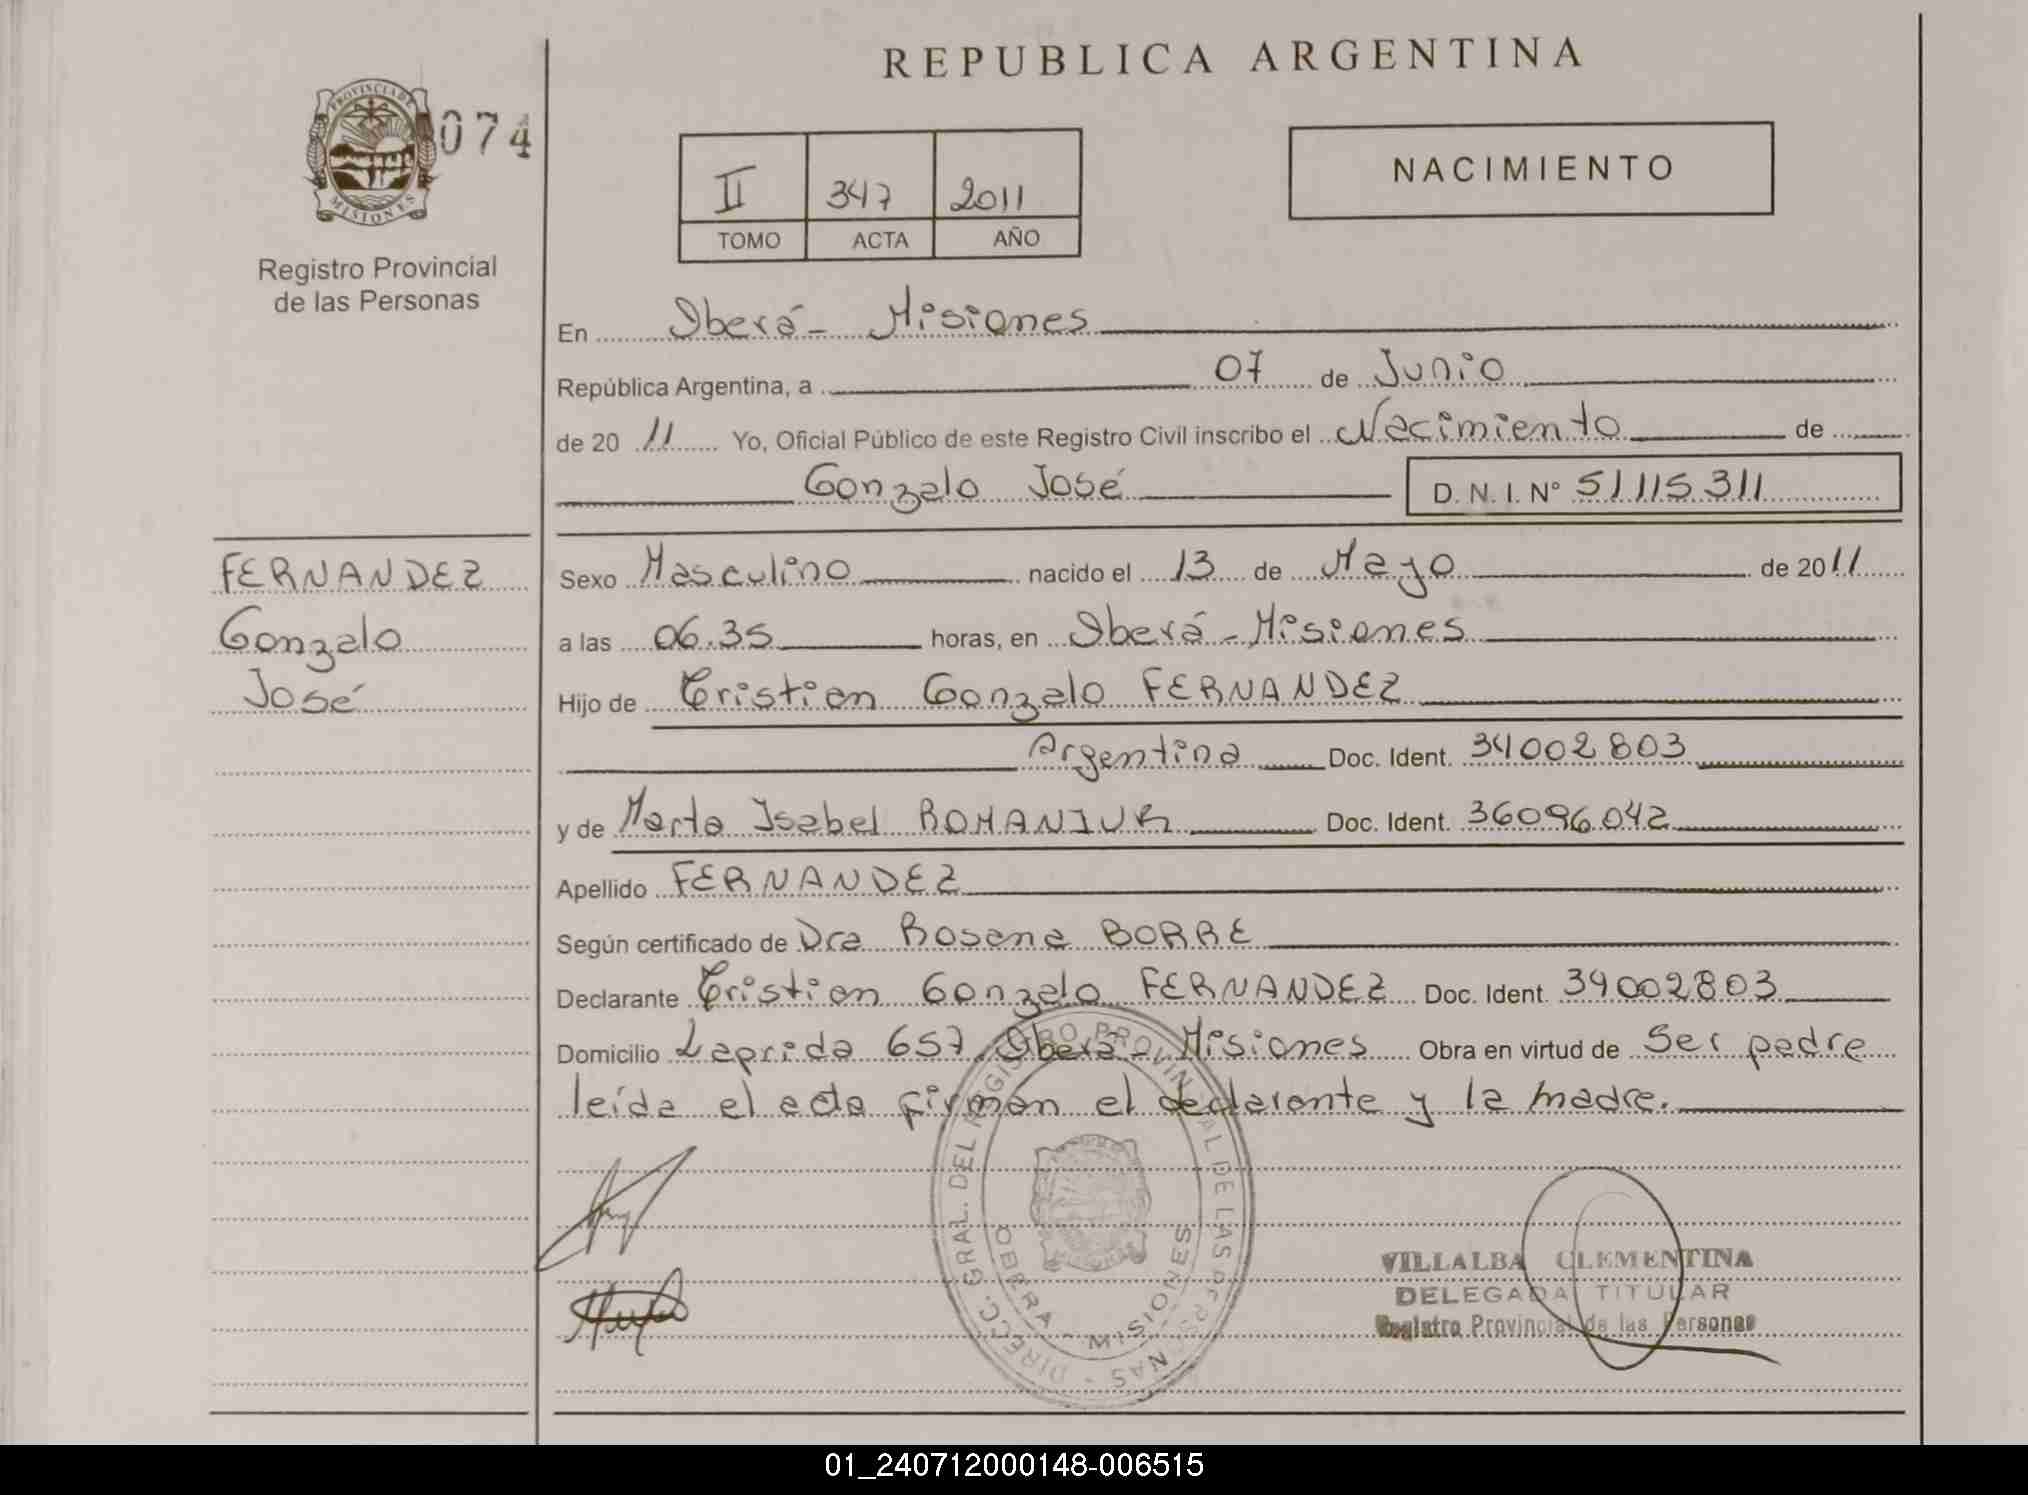 REPUBLICA ARGENTINA
PROVINCIA DE
MISIONES
074
Registro Provincial
de las Personas
II 347 2011
TOMO ACTA AÑO
NACIMIENTO
En Oberá - Misiones
República Argentina, a 07 de Junio
de 20 11 Yo, Oficial Público de este Registro Civil inscribo el Nacimiento de
Gonzalo José D. N. I. Nº 51115311
FERNANDEZ
Gonzalo
José
Sexo Masculino nacido el 13 de Mayo de 2011
a las 06.35 horas, en Oberá - Misiones
Hijo de Cristian Gonzalo FERNANDEZ
Argentina Doc. Ident. 34002803
y de Marta Isabel ROMANIUK Doc. Ident. 36096042
Apellido FERNANDEZ
Según certificado de Dra Rosana BORRE
Declarante Cristian Gonzalo FERNANDEZ Doc. Ident. 34002803
Domicilio Laprida 657. Oberá - Misiones Obra en virtud de Ser padre
leída el acta firman el declarante y la madre.
DIRECC. GRAL. DEL REGISTRO PROVINCIAL DE LAS PERSONAS
OBERA - MISIONES
VILLALBA CLEMENTINA
DELEGADA TITULAR
Registro Provincial de las Personas
01_240712000148-006515